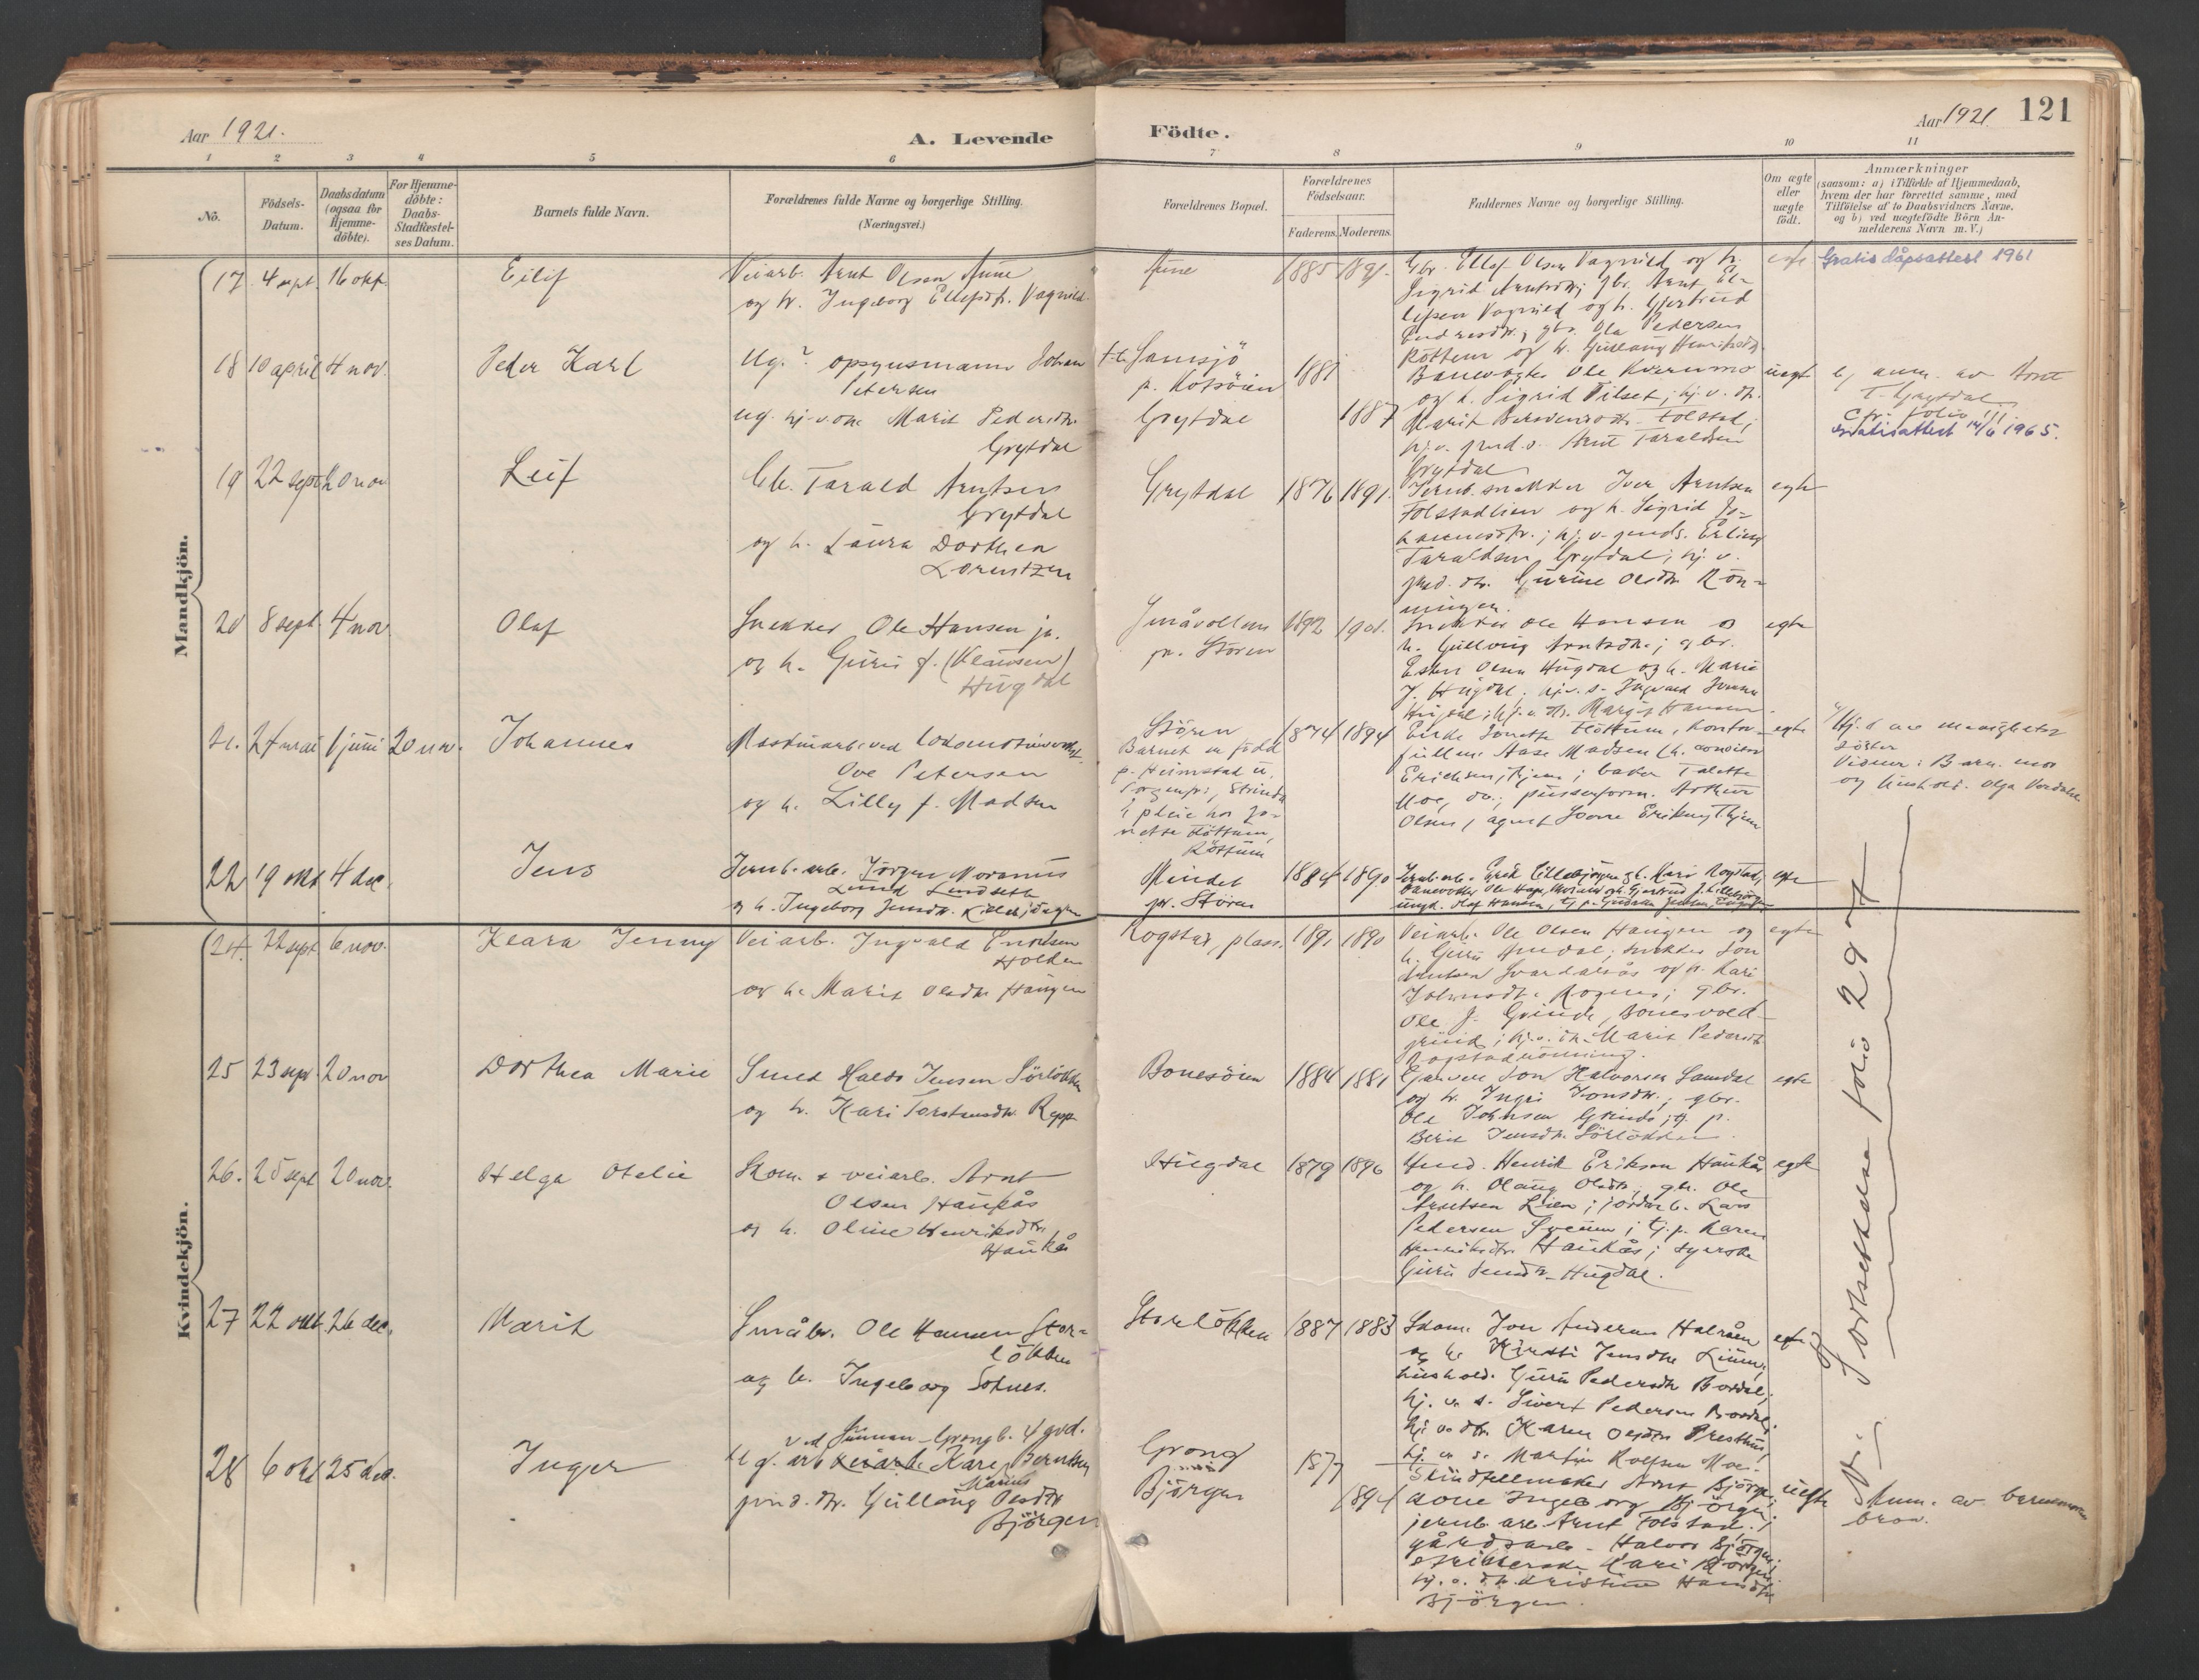 Aar 1921.
A. Levende
Födte.
Aar 1921.
121
1 2 3 4 5 6 7 8 9 10 11
No.
Födsels-
Datum.
Daabsdatum
(ogsaa for
Hjemme-
döbte).
For Hjemme-
döbte:
Daabs-
Stadfæstel-
ses Datum.
Barnets fulde Navn.
Forældrenes fulde Navne og borgerlige Stilling.
(Næringsvei.)
Forældrenes Bopæl.
Forældrenes
Födselsaar.
Faderens. Moderens.
Faddernes Navne og borgerlige Stilling.
Om ægte
eller
uægte
födt.
Anmærkninger
(saasom: a) i Tilfælde af Hjemmedaab,
hvem der har forrettet samme, med
Tilföielse af to Daabsvidners Navne.
og b) ved uægtefödte Börn An-
melderens Navn m. V.)
Mandkjön.
17 4 sept. 16 okt. Eilif
Veiarb. Arnt Olsen Aune
og h. Ingeborg Ellefsdtr. Vagnild
Aune 1885 1891.
Gbr. Ellef Olsen Vagnild og h.
Sigrid Arntsdtr; gbr. Arnt El-
lefsen Vagnild og h. Gjertrud
Endresdtr; gbr. Ola Pedersen
Röttum og h. Gullaug Henriksdtr.
Gratis dåpsattest 1961
18 10 april 4 nov. Peder Karl
Ug.? opsynsmann Johan
Petersen
ug. hj. v. om. Marit Pedersdtr.
Grytdal
f.t. Samsjö
p. Kotsöien
Grytdal
1881
1887
Banevogter Ole Kvernmo
og h. Sigrid Tilset; hj. v. dtr.
Marit Folstad;
hj. v. gmd. s. Arnt Taraldsen
Grytdal
uegt
b) anm. av Arnt
T. Grytdal
Cfr. folio 111.
Gratisattest 14/6 1965.
19 22 sept 20 nov Leif
Gb. Tarald Arntsen
Grytdal
og h. Laura Dorthea
Lorentzen
Grytdal 1876 1891.
Jernb. snekker Iver Arntsen
Folstadlien og h. Sigrid Jo-
hannesdtr.; hj. v. gmds. Erling
Taraldsen Grytdal; hj. v.
gmd. dtr. Gurine Olsdtr. Rön-
ningen.
egte
20 8 sept. 4 nov Olaf
Snekker Ole Hansen jr.
og h. Guru f. (Klausen)
Hugdal
Småvollen
pr. Stören
1892 1901.
Snekker Ole Hansen og
h. Gullvig Arntsdtr.; gbr.
Esten Olsen Hugdal og h. Marie
J. Hugdal; hj. v. s. Ingvald
Hugdal; hj. v. dtr. Margit Hansen.
egte
21. 24 mai 1 juni 20 nov. Johannes
Maskinarb. ved lokomotivverkst.
Ove Petersen
og h. Lilly f. Madsen
Stören
Barnet er född
p. Heimstad u.
Sorgenfri, Strinda
E pleie hos Ja-
nette Flöttum,
Röttum
1874 1894
Enke Janette Flöttum, kontor-
fröken Aase Madsen
Moe, Arthur
Olsen, agent
egte
a) Hj. d. av menighets
söster
Vidner: Barn. mor
og hushold. Olga Verdal
22 19 okt 4 dec. Jens
Jernb. arb. Jörgen
Lund
og h. Ingeborg Jensdtr.
Mindet
pr. Stören
1884 1890
egte
Kvindekjön.
24. 22 sept 6 nov. Klara Jenny
Veiarb. Ingvald Enoksen
Holden
og h. Marit Olsdtr. Haugen
Rogstad, plass. 1891 1890
Veiarb. Ole Olsen Haugen og
h. Guru; snekker Jon
Arntsen og p. Kari
Johnsdtr. Rognes; gbr.
Ole J. Grinde, Bonesvold-
grind; hj. v. dtr. Marit Pedersdtr.
Rogstadrönning.
egte
25 23 sept. 20 nov Dorthea Marie
Smed Haldo Jensen Sörlökken
og h. Kari Torstensdtr. Repp
Bonesöien 1884 1881
Garver Jon Halvorsen Samdal
og h. Ingri Jonsdtr.; gbr.
Ole Johnsen Grinde; tj. p.
Berit Jensdtr. Sörlökken.
egte
26. 25 sept 20 nov. Helga Otelie
Skom. & veiarb. Arnt
Olsen Haukås
og h. Oline Henriksdtr.
Haukås
Hugdal 1879 1896
Henrik Eriksen Haukås
og h. Olaug Olsdtr; gbr. Ole
Arntsen Lien; jordarb. Lars
Pedersen; tj. p. Karen
Henriksdtr. Haukås; syerske
Guru Hugdal.
egte
27 22 okt. 26 dec. Marit
Småbr. Ole Hansen Stor-
lökken
og h. Ingeborg Solnes.
Storlökken 1887 1883
Skom. Jon Andersen Halråen
og h. Kirsti Jensdtr.
hushold. Guru Pedersdtr. Bordal;
hj. v. s. Sivert Pedersen Bordal;
hj. v. dtr. Karen Olsdtr. Presthus;
hj. v. s. Martin Rolfsen Moe.
egte
28 6 okt 25 dec. Inger
ved Sunnan-Grongb. 4 avd.
Ug. arb. Kare Berntsen
Marius
gmd. dtr. Gullaug Olsdtr.
Björgen
Grong
Björgen
1877
1894
Skindfellmaker Arnt Björgen;
kone Ingeborg Björgen;
jernb. arb. Arnt Folstad;
gårdsarb. Halvor Björgen;
strikkerske Kari Björgen;
hj. v. dtr. Kristine Hansdtr.
Björgen.
uegte
Anm. av barnemoren
bror.
Fortsettelse folio 297